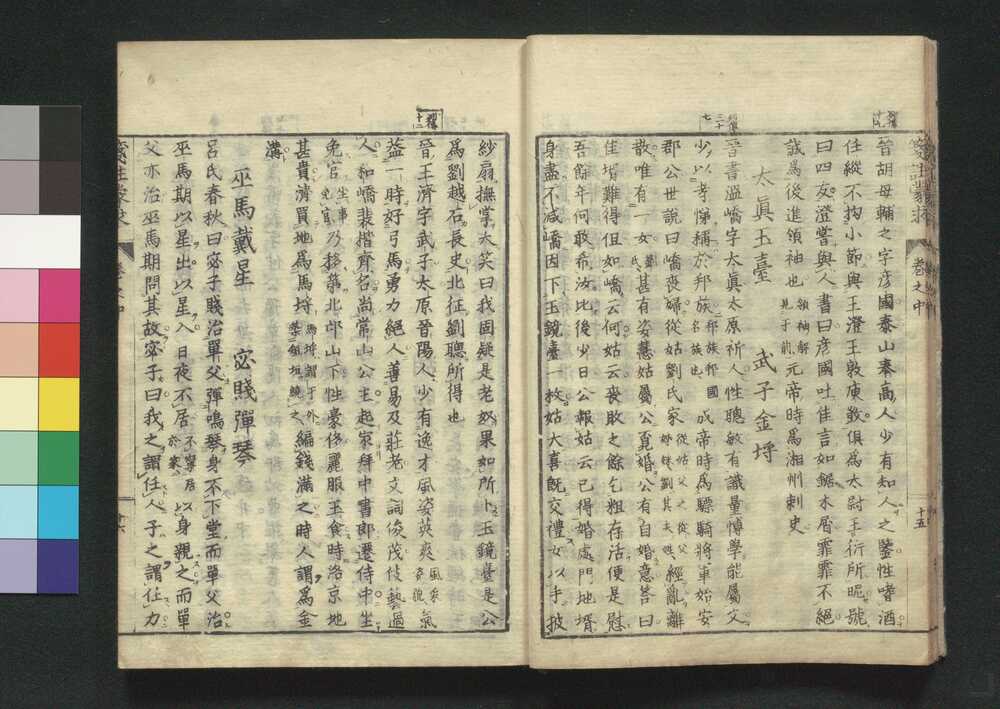 晉胡毋輔之字彦國泰山奉高人少有知人之鑒性嗜酒
任縱不拘小節與王澄王敦庾敳俱爲太尉王衍所昵號
曰四友澄嘗與人書曰彦國吐佳言如鋸木屑霏霏不絕
誠爲後進領袖也領袖解見于前元帝時爲湘州刺史
太眞玉臺 武子金埒
晉書溫嶠字太眞太原祁人性聰敏有識量博學能屬文
少以孝悌稱於邦族邦族邦國名族也成帝時爲驃騎將軍始安
郡公世說曰嶠喪婦從姑劉氏家經亂離
散唯有一女甚有姿慧姑屬公覓婚公有自婚意答曰
佳壻難得但如嶠云何姑云喪敗之餘乞粗存活便是慰
吾餘年何敢希汝比後少日公報姑云已得婚處門地壻
身盡不减嶠因下玉鏡臺一枚姑大喜旣交禮女以手披
紗扇撫掌大笑曰我固疑是老奴果如所卜玉鏡臺是公
爲劉越石長史北征劉聰所得也
晉王濟字武子太原晉陽人少有逸才風姿英爽氣
益一時好弓馬勇力絕人善易及莊老文詞俊茂伎藝過
人和嶠裴揩齊名尚常山公主起家拜中書郎遷侍中坐
免官乃移第北邙山下性豪侈麗服玉食時洛京地
甚貴濟買地爲馬埒編錢滿之時人謂爲金
溝
巫馬戴星 宓賤彈琴
呂氏春秋曰宓子賤治單父彈鳴琴身不下堂而單父治
巫馬期以星出以星入日夜不居以身親之而單
父亦治巫馬期問其故宓子曰我之謂任人子之謂任力
卷之中
十五